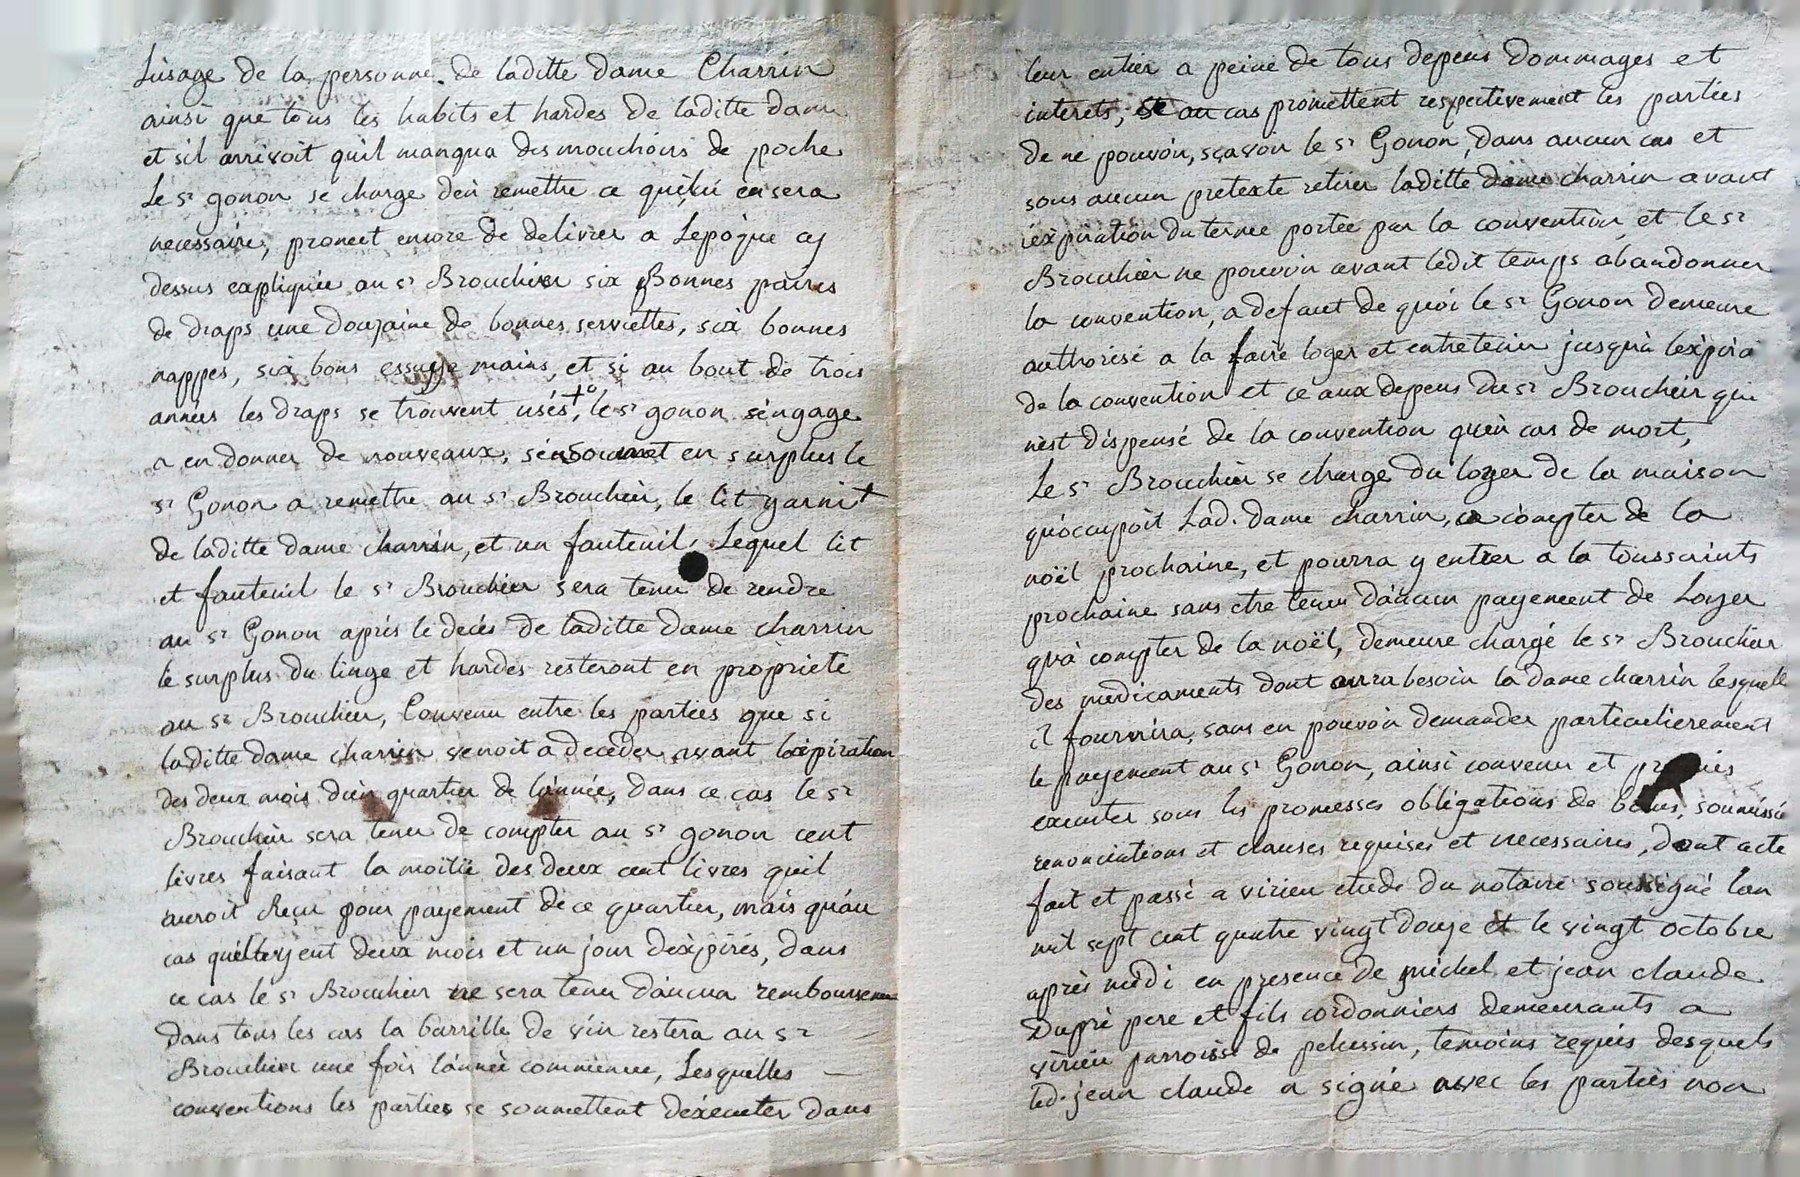 Lusage de la personne de laditte dame Charrin
ainsi que tous les habits et hardes de laditte dame
et sil arrivoit quil manqua des mouchoirs de poche
Le sr gonon se charge den remettre ce quil en sera
necessaire, promet encore de delivrer a Lepoque cy
dessus expliquée au sr Brouchier six Bonnes paires
de draps une douzaine de bonnes serviettes, six bonnes
nappes, six bons essuye mains, et si au bout de trois
années les draps se trouvent usés, le sr gonon sengage
a en donner de nouveaux, se soumet en surplus le
sr Gonon a remettre au sr Brouchier, le lit garnit
de laditte dame charrin, et un fauteuil, Lequel lit
et fauteuil le sr Brouchier sera tenu de rendre
au sr Gonon aprés le decés de laditte dame charrin
le surplus du linge et hardes resteront en propriete
au sr Brouchier, Convenu entre les parties que si
laditte dame charrin venoit a deceder avant lexpiration
des deux mois dun quartier de lannée, dans ce cas le sr
Brouchier sera tenu de compter au sr gonon cent
livres faisant la moitié des deux cent livres quil
auroit Reçu pour payement de ce quartier, mais quau
cas quil y ent deux mois et un jour dexpirés, dans
ce cas le sr Brouchier ne sera tenu daucun remboursement
dans tous les cas la barrille de vin restera au sr
Brouchier une fois lannée commencee, Lesquelles —
conventions les parties se soumettent dexecuter dans
leur entier a peine de tous depens dommages et
interets, au cas promettent respectivement les parties
de ne pouvoir, sçavoir le sr Gonon, dans aucun cas et
sous aucun pretexte retirer laditte dame charrin avant
lexpiration du terme portée par la convention et le sr
Brouchier ne pouvoir avant ledit temps abandonner
la convention, a defaut de quoi le sr Gonon demeure
authorisé a la faire loger et entretenir jusqua lexpira
de la convention et ce aux depens du sr Brouchier qui
nest dispensé de la convention quen cas de mort,
Le sr Brouchier se charge du loyer de la maison
quoccupoit Lad. dame charrin, a compter de la
noël prochaine, et pourra y entrer a la toussaints
prochaine sans etre tenu daucun payement de Loyer
qua compter de la noël, demeure chargé le sr Brouchier
des medicaments dont aura besoin la dame charrin lesquels
il fournira, sans en pouvoir demander particulierement
le payement au sr Gonon, ainsi convenu et promis
executer sous les promesses obligations de biens, soumissio
renonciations et clauses requises et necessaires, dont acte
fait et passé a virieu etude du notaire soussigné lan
mil sept cent quatre vingt douze et le vingt octobre
aprés midi en presence de michel et jean claude
Dupré pere et fils cordonniers demeurants a
virieu parroisse de pelussin, temoins requis desquels
led. jean claude a signé avec les parties non